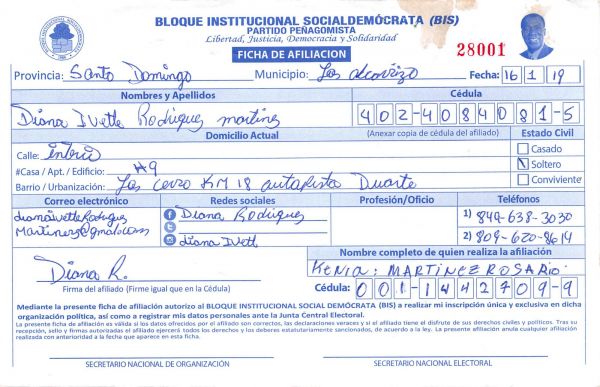 BLOQUE INSTITUCIONAL SOCIALDEMÓCRATA (BIS)
PARTIDO PEÑAGOMISTA
Libertad, Justicia, Democracia y Solidaridad
FICHA DE AFILIACION
28001
Provincia: Santo Domingo Municipio: Los alcarrizo Fecha: 16 1 19
Nombres y Apellidos Cédula
Diana Ivette Rodriguez martinez 402-4084081-5
Domicilio Actual (Anexar copia de cédula del afiliado) Estado Civil
Calle: Casado
#Casa / Apt. / Edificio: #9 Soltero
Barrio / Urbanización: Los KM 18 autopista Duarte Conviviente
Correo electrónico Redes sociales Profesión/Oficio Teléfonos
dianaivetteRodriguez Diana Rodriguez 1) 849-638-3030
Martinez@gmail.com diana Ivett 2) 809-620-8614
Nombre completo de quien realiza la afiliación
Diana R. KENIA: MARTINEZ ROSARIO.
Firma del afiliado (Firme igual que en la Cédula) Cédula: 001-1442709-9
Mediante la presente ficha de afiliación autorizo al BLOQUE INSTITUCIONAL SOCIAL DEMÓCRATA (BIS) a realizar mi inscripción única y exclusiva en dicha
organización política, así como a registrar mis datos personales ante la Junta Central Electoral.
La presente ficha de afiliación es válida si los datos ofrecidos por el afiliado son correctos, las declaraciones veraces y si el afiliado tiene el disfrute de sus derechos civiles y políticos. Tras su
recepción, sello y firmas autorizadas el afiliado ejercerá todos los derechos y los deberes estatutariamente sancionados, de acuerdo a la ley. La presente afiliación anula cualquier afiliación
realizada con anterioridad a la fecha que aparece en esta ficha.
SECRETARIO NACIONAL DE ORGANIZACIÓN SECRETARIO NACIONAL ELECTORAL